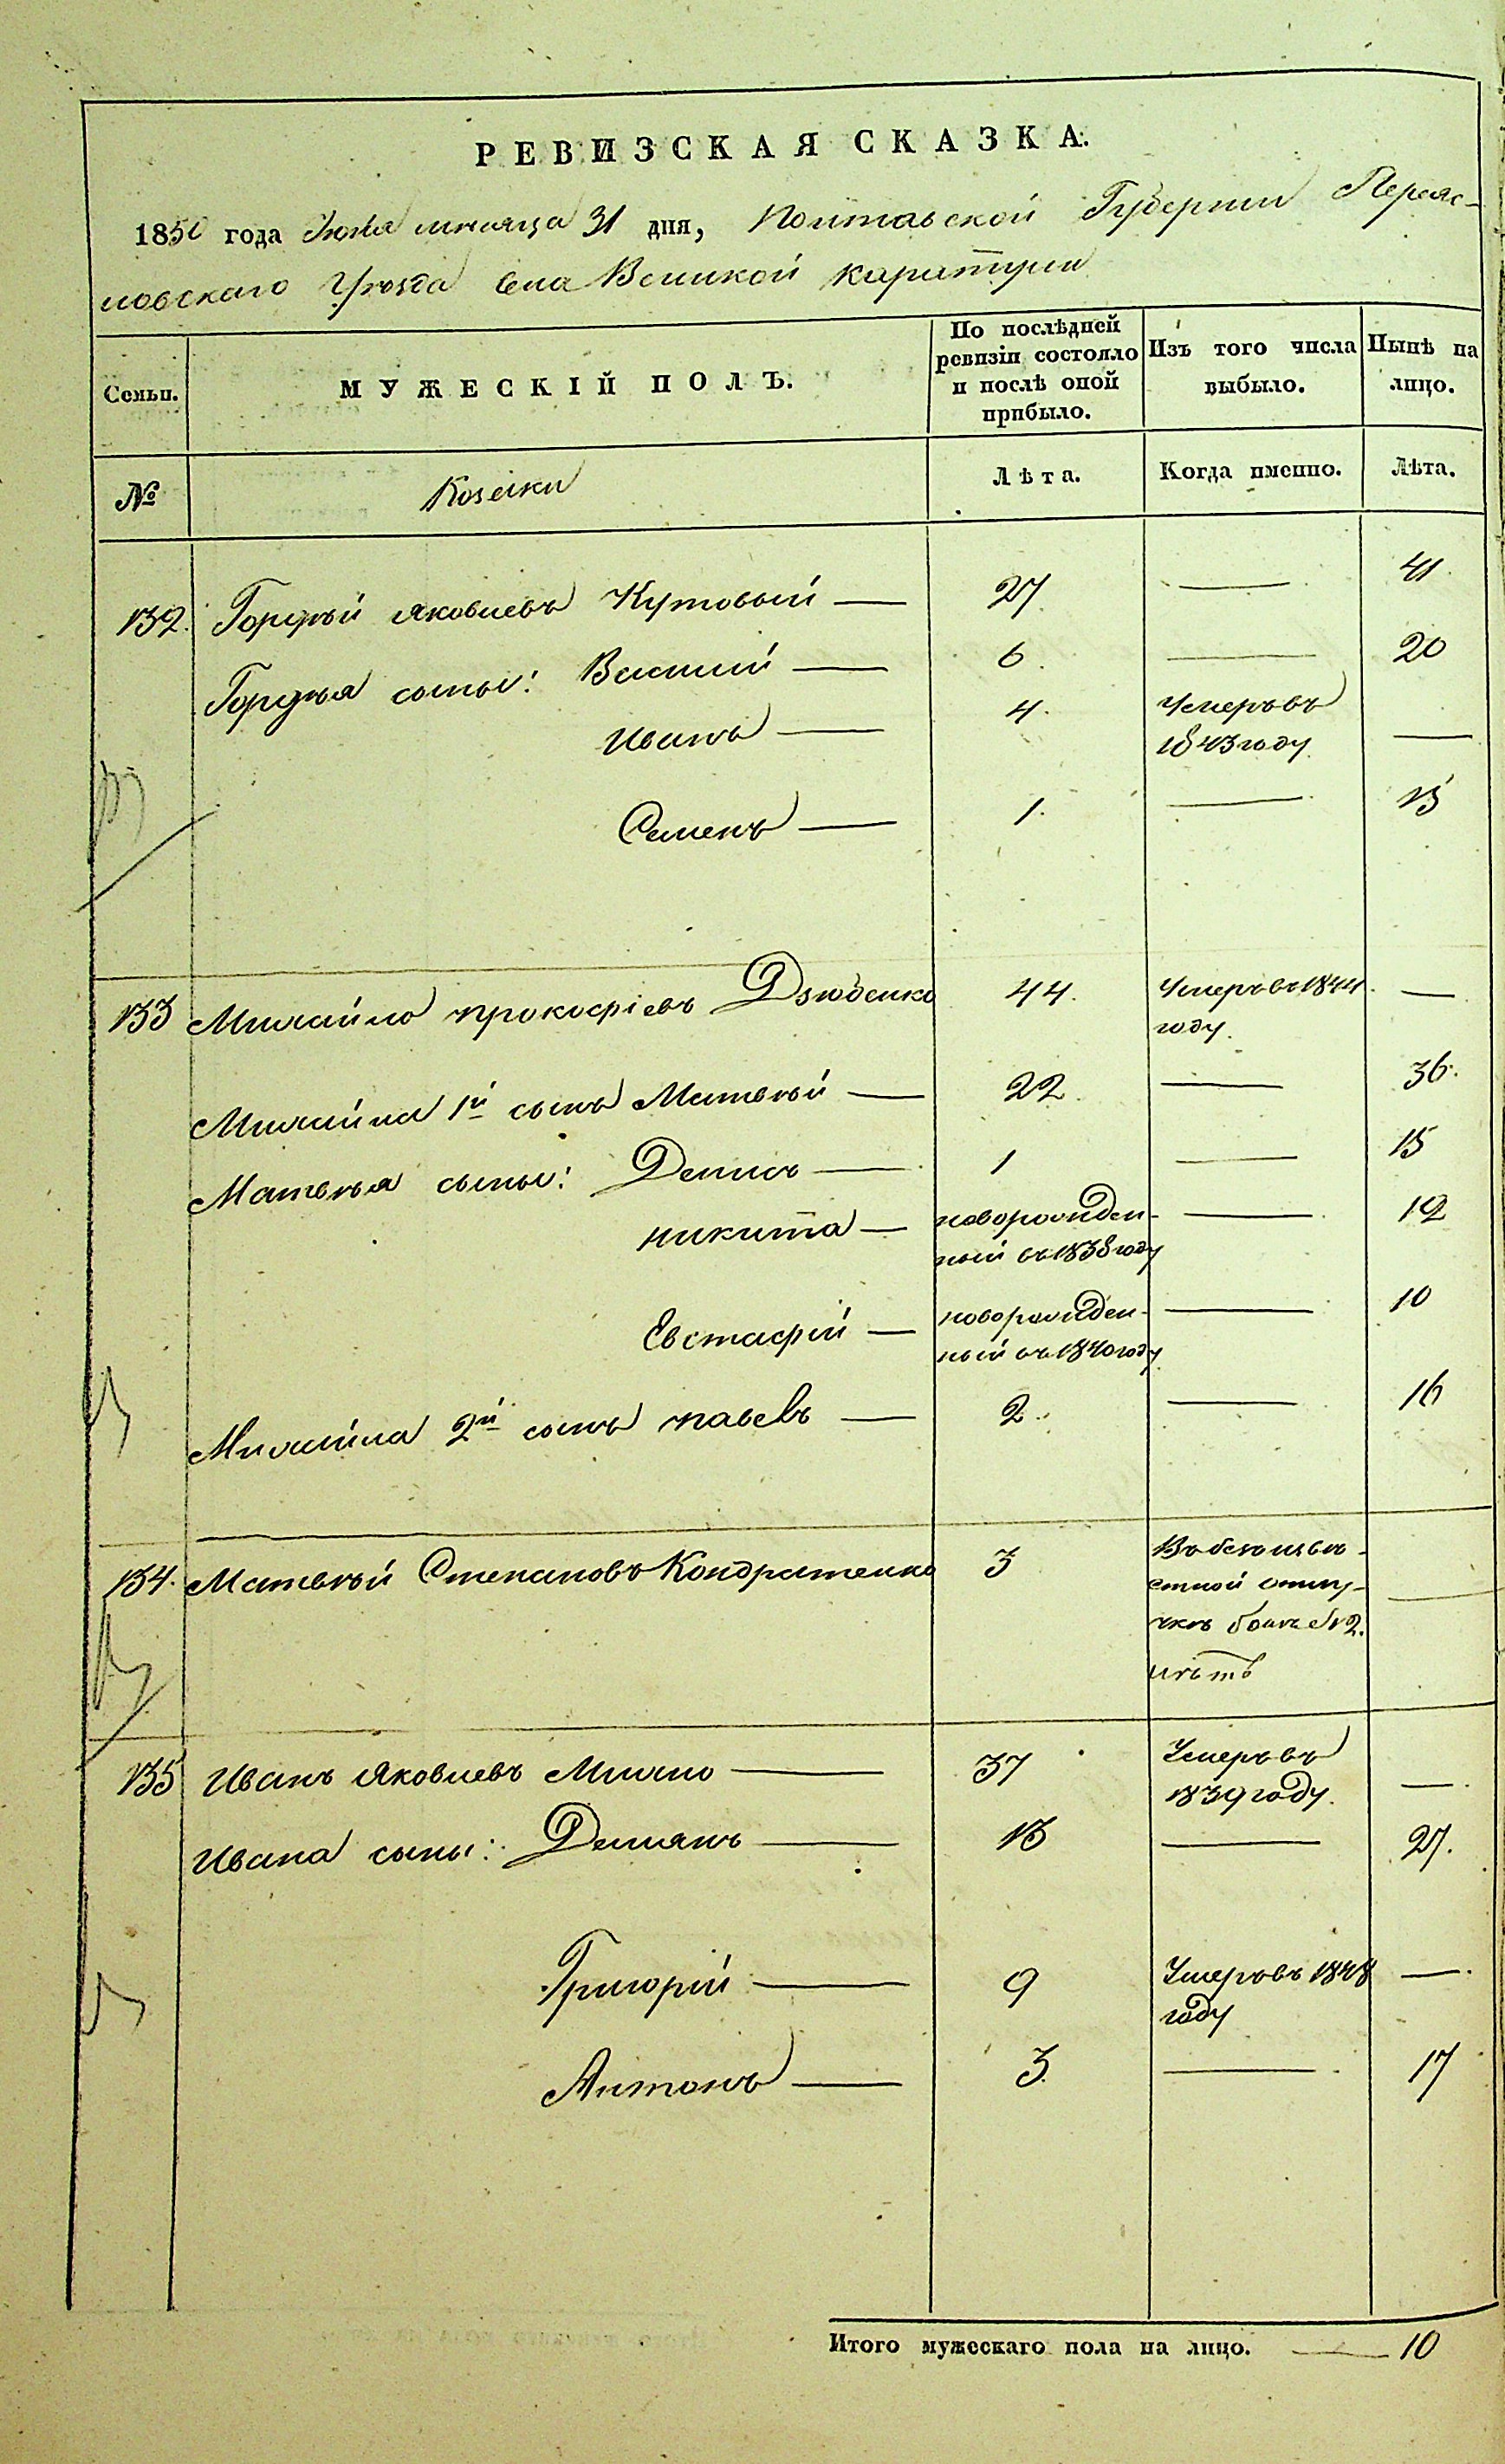 РЕВИЗСКАЯ СКАЗКА.
1850 года Июля мѣсяца 31 дня, Полтавской Губернии Переяс-
ловскаго Уѣзда села Великой Каратули
Семьи. МУЖЕСКІЙ ПОЛЪ. По послѣдней ревизіи состояло и послѣ оной прибыло. Изъ того числа выбыло. Нынѣ на лицо.
№ Козаки Лѣта. Когда именно. Лѣта.
132. Гордѣй Яковлевъ Кутовый — 27. — 41.
Гордѣя сыны: Василий — 6. — 20
Иванъ — 4. Умеръ въ 1843 году —
Семенъ — 1. — 15
133 Михайло Прокофіевъ Дзюбенко 44. Умеръ въ 1844 году. —
Михайла 1й сынъ Матвѣй — 22. — 36.
Матвѣя сыны: Денисъ — 1 — 15
Никита — новорожден-ный въ 1838 году — 12
Евстафій — новорожден-ный въ 1840 году — 10
Михайла 2й сынъ Павелъ — 2. — 16
134. Матвѣй Степановъ Кондратенко 3 Въ безъизвѣ-
стной отлу-
чкѣ болѣе 12.
лѣтъ —
135 Иванъ Яковлевъ Михно — 37 Умеръ въ 1839 году. —
Ивана сыны: Демянъ — 13 — 27.
Григорій — 9 Умеръ въ 1848 году —
Антонъ — 3. — 17
Итого мужескаго пола на лицо. — 10